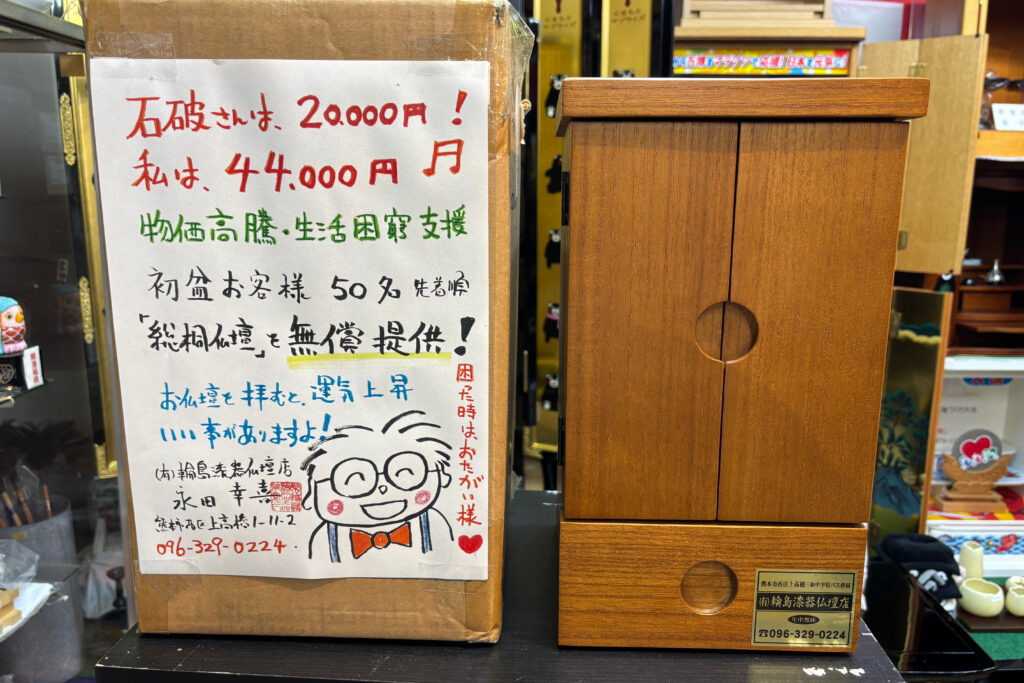 石破さんは、20.000円!
私は、44.000円
円
物価高騰・生活困窮支援
初盆お客様 50名 先着順
「総桐仏壇」を無償提供!
お仏壇を拝むと、運気上昇
いい事がありますよ!
困った時は、おたがい様
(有)輪島漆器仏壇店
永田幸喜
熊本市西区上高橋1-11-2
096-329-0224
熊本市西区上高橋三和中学校バス停前
(有)輪島漆器仏壇店
年中無休
☎096-329-0224